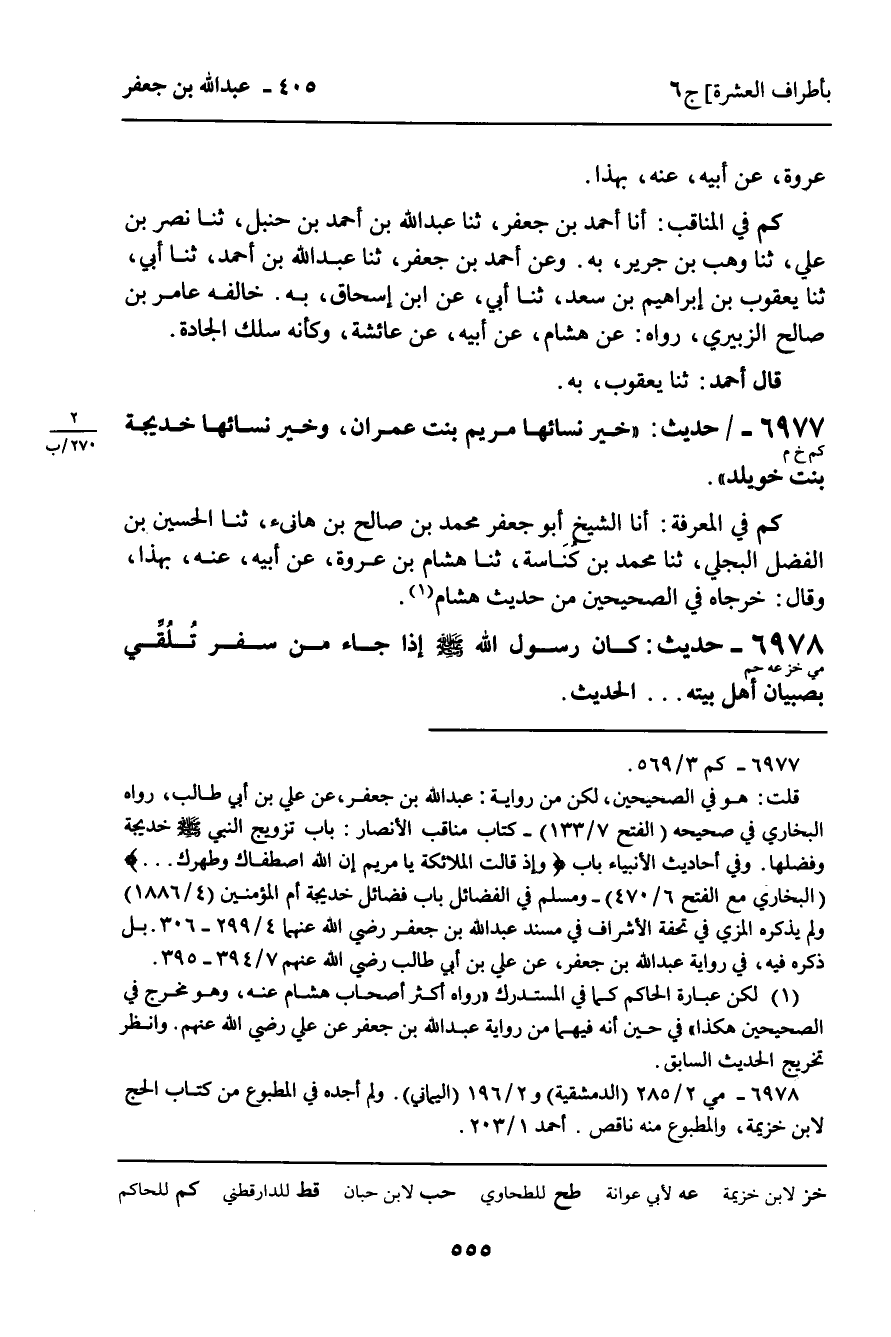 بأطراف العشرة] ج٦
٤٠٥ ـ عبدالله بن جعفر
عروة، عن أبيه، عنه، بهذا.
كم في المناقب: أنا أحمد بن جعفر، ثنا عبدالله بن أحمد بن حنبل، ثنا نصر بن
علي، ثنا وهب بن جرير، به. وعن أحمد بن جعفر، ثنا عبدالله بن أحمد، ثنا أبي،
ثنا يعقوب بن إبراهيم بن سعد، ثنا أبي، عن ابن إسحاق، به. خالفه عامر بن
صالح الزبيري، رواه: عن هشام، عن أبيه، عن عائشة، وكأنه سلك الجادة.
قال أحمد: ثنا يعقوب، به.
٦٩٧٧ ـ / حديث: «خير نسائها مريم بنت عمران، وخير نسائها خديجة
٢
٢٧٠/ب
كم خ م
بنت خويلد».
كم في المعرفة: أنا الشيخ أبو جعفر محمد بن صالح بن هانىء، ثنا الحسين بن
الفضل البجلي، ثنا محمد بن كُنَاسة، ثنا هشام بن عروة، عن أبيه، عنه، بهذا،
وقال: خرجاه في الصحيحين من حديث هشام(١).
٦٩٧٨ ـ حديث: كان رسول الله ﷺ إذا جاء من سفر تُلُقِّي
مي خز عه حم
بصبيان أهل بيته... الحديث.
٦٩٧٧ ـ كم ٥٦٩/٣.
قلت: هو في الصحيحين، لكن من رواية: عبدالله بن جعفر، عن علي بن أبي طالب، رواه
البخاري في صحيحه (الفتح ١٣٣/٧) ـ كتاب مناقب الأنصار: باب تزويج النبي ﷺ خديجة
وفضلها. وفي أحاديث الأنبياء باب ﴿وإذ قالت الملائكة يا مريم إن الله اصطفاك وطهرك...﴾
(البخاري مع الفتح ٤٧٠/٦) ـ ومسلم في الفضائل باب فضائل خديجة أم المؤمنين (١٨٨٦/٤)
ولم يذكره المزي في تحفة الأشراف في مسند عبدالله بن جعفر رضي الله عنهما ٢٩٩/٤ ـ ٣٠٦. بل
ذكره فيه، في رواية عبدالله بن جعفر، عن علي بن أبي طالب رضي الله عنهم ٣٩٤/٧ ـ ٣٩٥.
(١) لكن عبارة الحاكم كما في المستدرك «رواه أكثر أصحاب هشام عنه، وهو مخرج في
الصحيحين هكذا» في حين أنه فيهما من رواية عبدالله بن جعفر عن علي رضي الله عنهم. وانظر
تخريج الحديث السابق.
٦٩٧٨ ـ مي ٢٨٥/٢ (الدمشقية) و ١٩٦/٢ (اليماني). ولم أجده في المطبوع من كتاب الحج
لابن خزيمة، والمطبوع منه ناقص. أحمد ٢٠٣/١.
خز لابن خزيمة عه لأبي عوانة طح للطحاوي حب لابن حبان قط للدارقطني كم للحاكم
٥٥٥